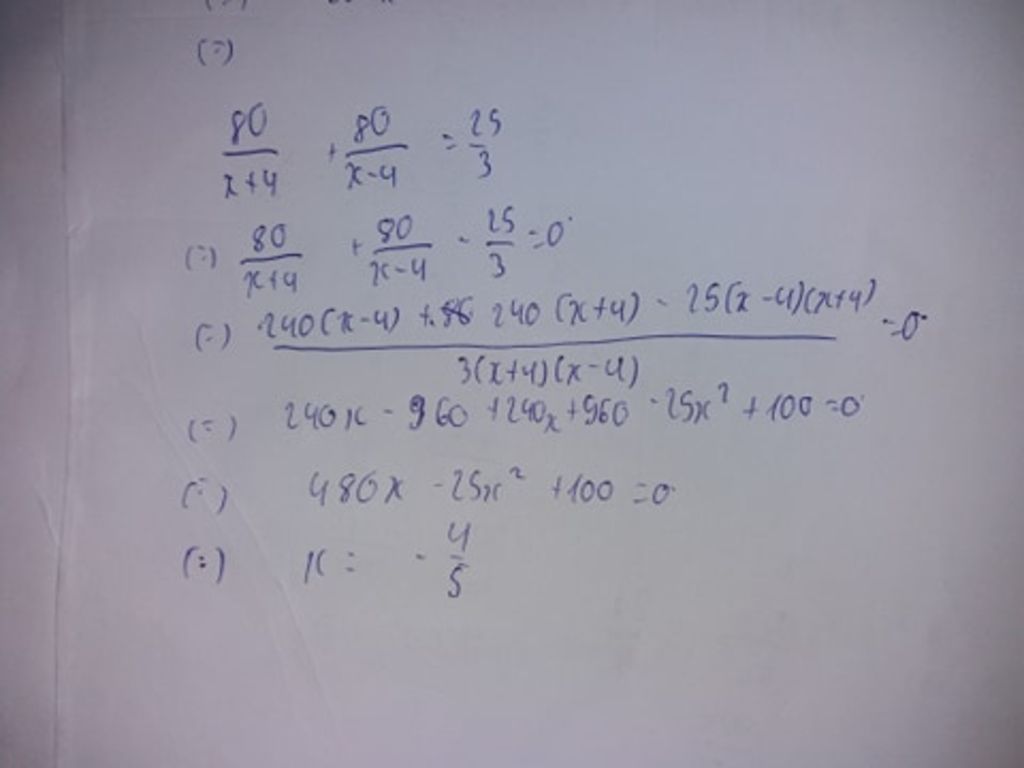 (=)
80/(x+4) + 80/(x-4) = 25/3
(=) 80/(x+4) + 80/(x-4) - 25/3 = 0
(=) 240(x-4) + 240(x+4) - 25(x-4)(x+4) / 3(x+4)(x-4) = 0
(=) 240x - 960 + 240x + 960 - 25x² + 100 = 0
(=) 480x - 25x² + 100 = 0
(=) x = - 4/5